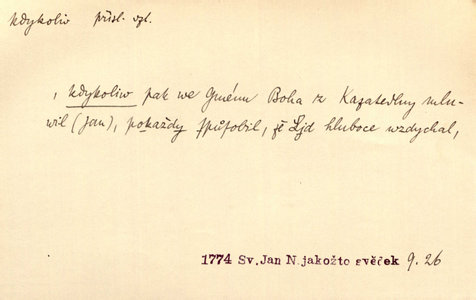 kdykoliv přísl. vzt.
, kdykoliw pak we Gménu Boha z Kazatedlny mlu-
wil (Jan), pokaždy spůsobil, že Ljd hluboce wzdychal,
1774 Sv. Jan N. jakožto svěček 9. 26